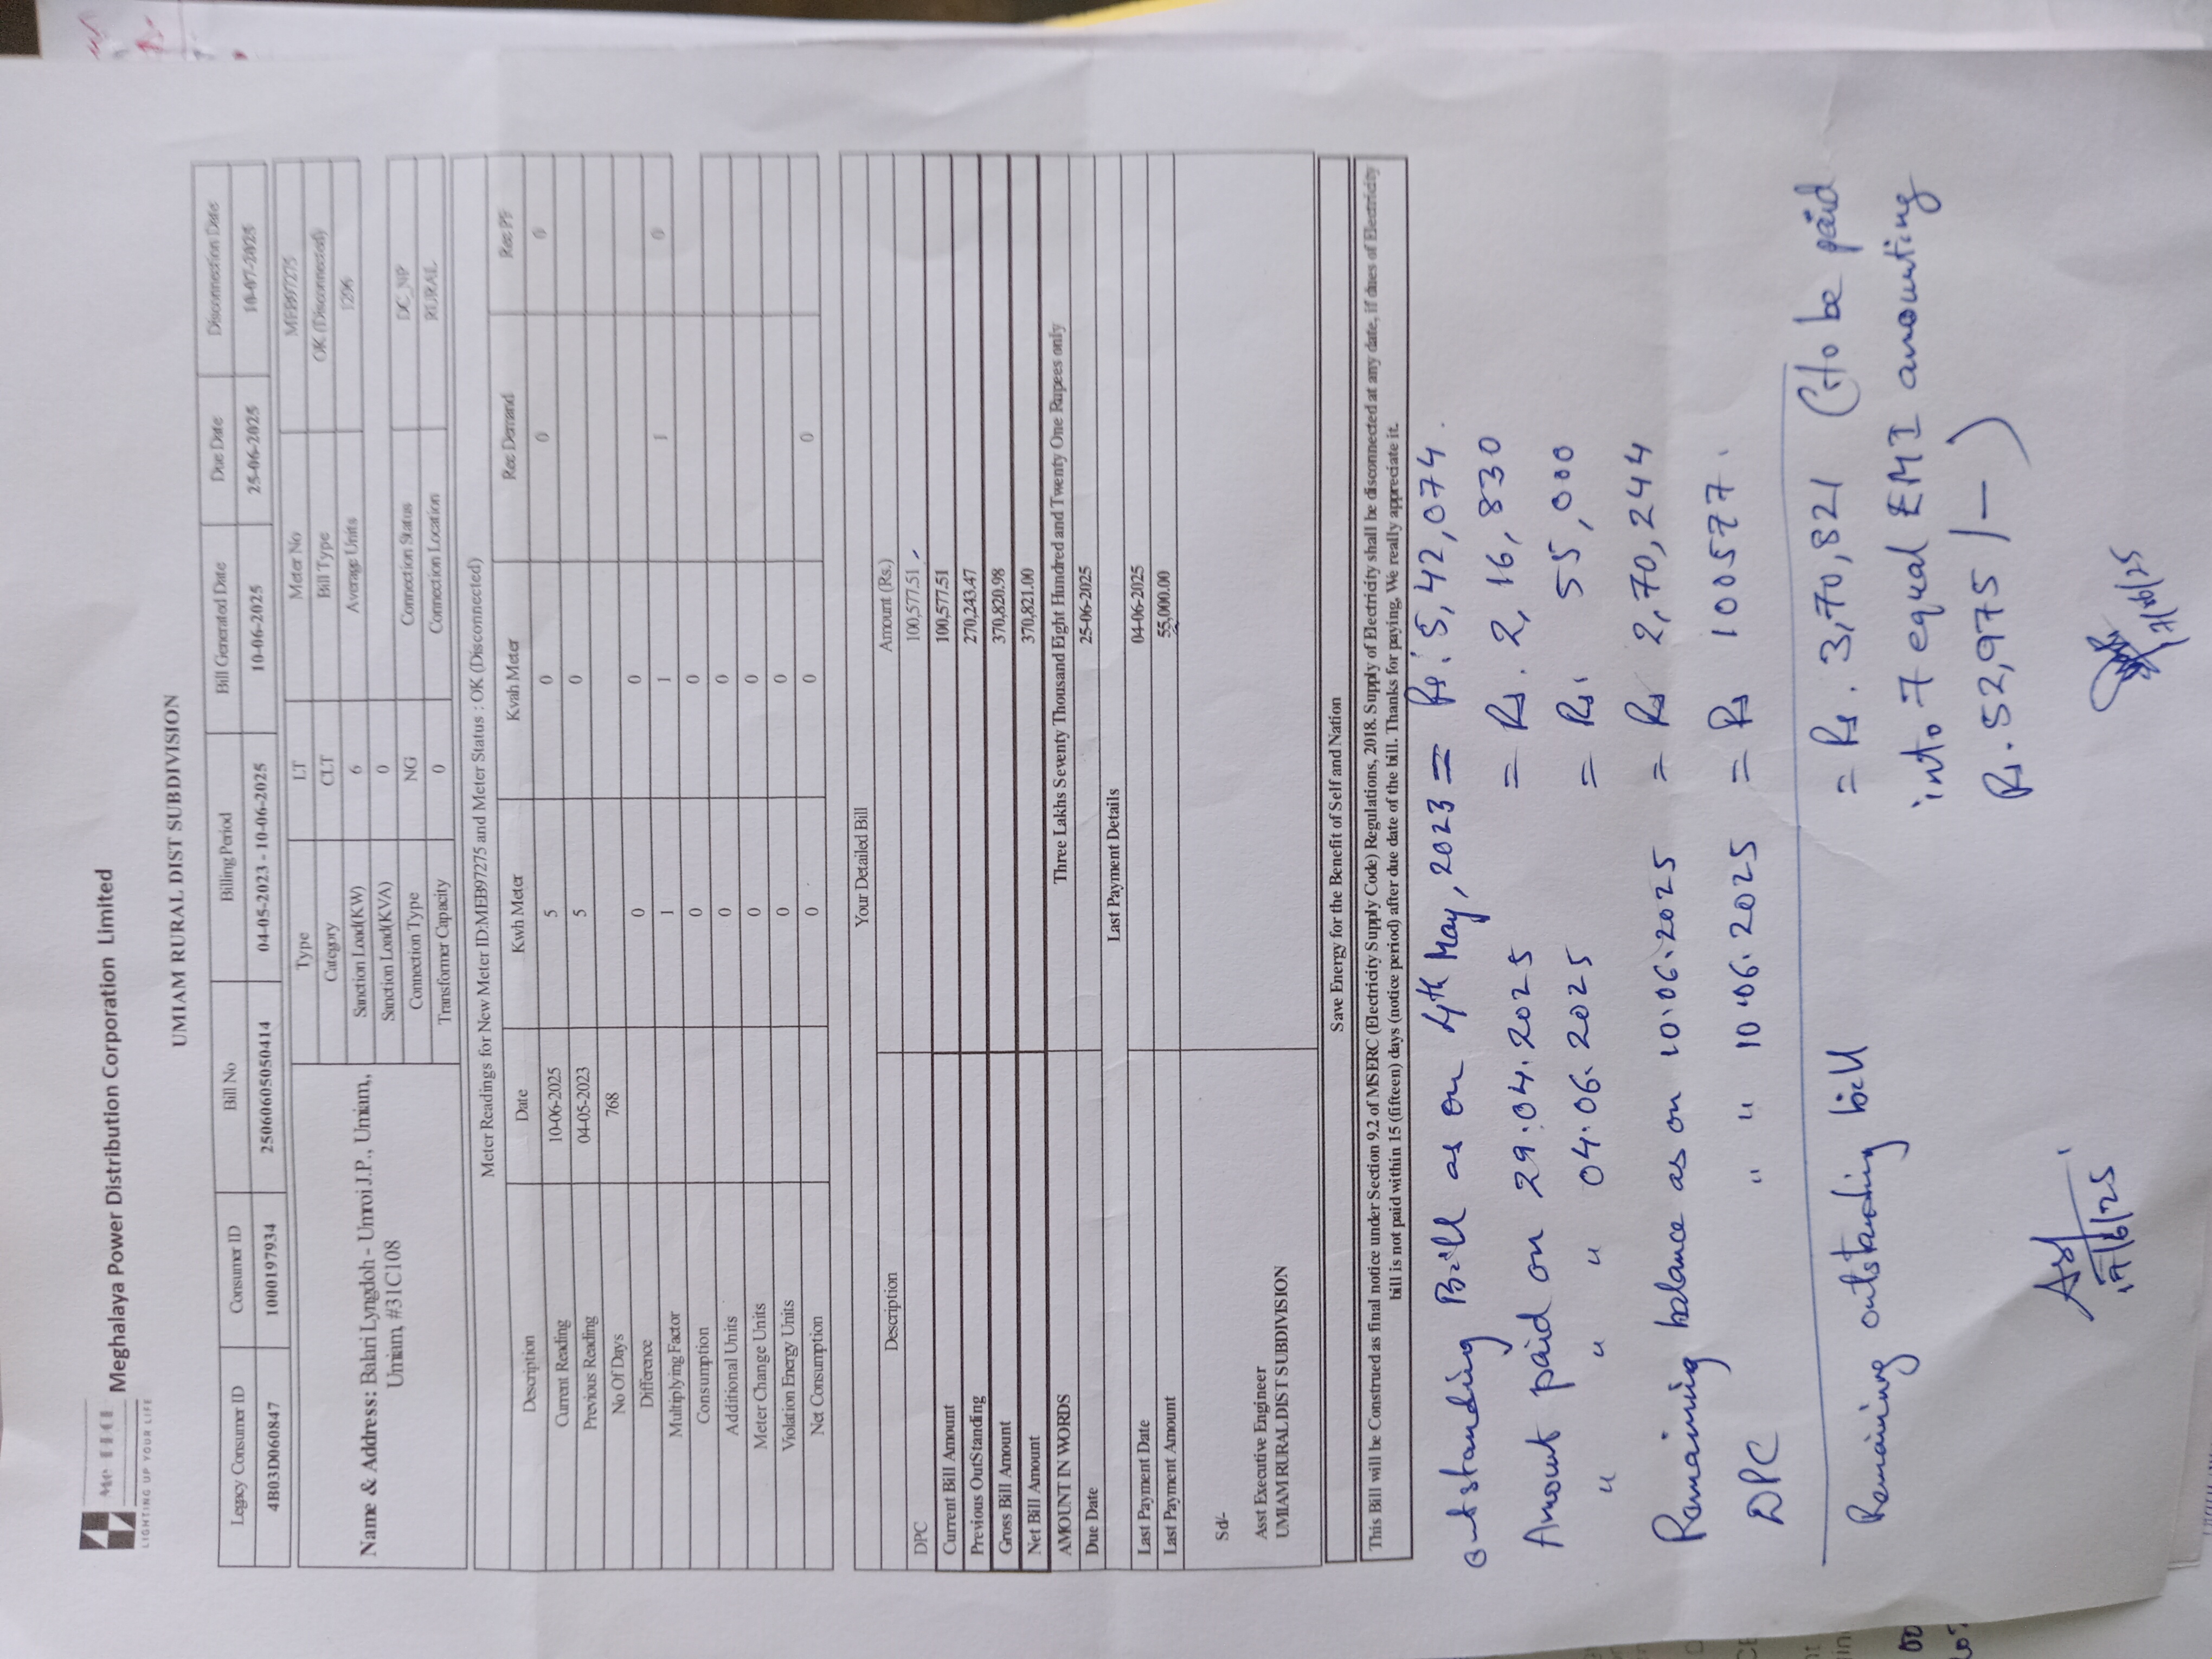 Meghalaya Power Distribution Corporation Limited
LIGHTING UP YOUR LIFE
UMIAM RURAL DIST SUBDIVISION
Legacy Consumer ID Consumer ID Bill No Billing Period Bill Generated Date Due Date Disconnection Date
4B03D060847 1000197934 250606050414 04-05-2023 - 10-06-2025 10-06-2025 25-06-2025 10-07-2025
Name & Address: Balari Lyngdoh - Umroi J.P., Umiam,,
Umiam, #31C108
Type LT Meter No MEB97275
Category CLT Bill Type OK (Disconnected)
Sanction Load(KW) 6 Average Units 1206
Sanction Load(KVA) 0
Connection Type NG Connection Status DC_NP
Transformer Capacity 0 Connection Location RURAL
Meter Readings for New Meter ID:MEB97275 and Meter Status : OK (Disconnected)
Description Date Kwh Meter Kvah Meter Rec Demand Rec PF
Current Reading 10-06-2025 5 0 0 0
Previous Reading 04-05-2023 5 0
No Of Days 768
Difference 0 0
Multiplying Factor 1 1 1 0
Consumption 0 0
Additional Units 0 0
Meter Change Units 0 0
Violation Energy Units 0 0
Net Consumption 0 0 0
Your Detailed Bill
Description Amount (Rs.)
DPC 100,577.51
Current Bill Amount 100,577.51
Previous OutStanding 270,243.47
Gross Bill Amount 370,820.98
Net Bill Amount 370,821.00
AMOUNT IN WORDS Three Lakhs Seventy Thousand Eight Hundred and Twenty One Rupees only
Due Date 25-06-2025
Last Payment Details
Last Payment Date 04-06-2025
Last Payment Amount 55,000.00
Sd/-
Asst Executive Engineer
UMIAM RURAL DIST SUBDIVISION
Save Energy for the Benefit of Self and Nation
This Bill will be Construed as final notice under Section 9.2 of MSERC (Electricity Supply Code) Regulations, 2018. Supply of Electricity shall be disconnected at any date, if dues of Electricity
bill is not paid within 15 (fifteen) days (notice period) after due date of the bill. Thanks for paying, We really appreciate it.
outstanding Bill as on 4th May, 2023 = Rs. 5,42,074.
Amount paid on 29.04.2025 = Rs. 2,16,830
" " " 04.06.2025 = Rs. 55,000
Remaining balance as on 10.06.2025 = Rs 2,70,244
DPC " " 10.06.2025 = Rs 100577.
Remaining outstanding bill = Rs. 3,70,821 (to be paid
into 7 equal EMI amounting
Rs. 52,975/-)
17/6/25